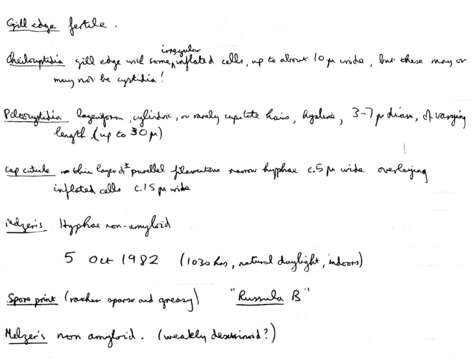 Gill edge fertile.
irregular
Cheilocystidia gill edge with some inflated cells, up to about 10 µ wide, but these may or
may not be cystidia!
Pileocystidia lageniform, cylindric, or rarely capitate hairs, hyaline, 3-7 µ diam, of varying
length (up to 30 µ)
Cap cuticle thin layer of ± parallel filamentous narrow hyphae c.5 µ wide overlaying
inflated cells c.15 µ wide
Melzer's Hyphae non-amyloid
5 Oct 1982 (1030 hrs, natural daylight, indoors)
Spore print (rather sparse and greasy) "Russula B"
Melzer's non amyloid. (weakly dextrinoid?)